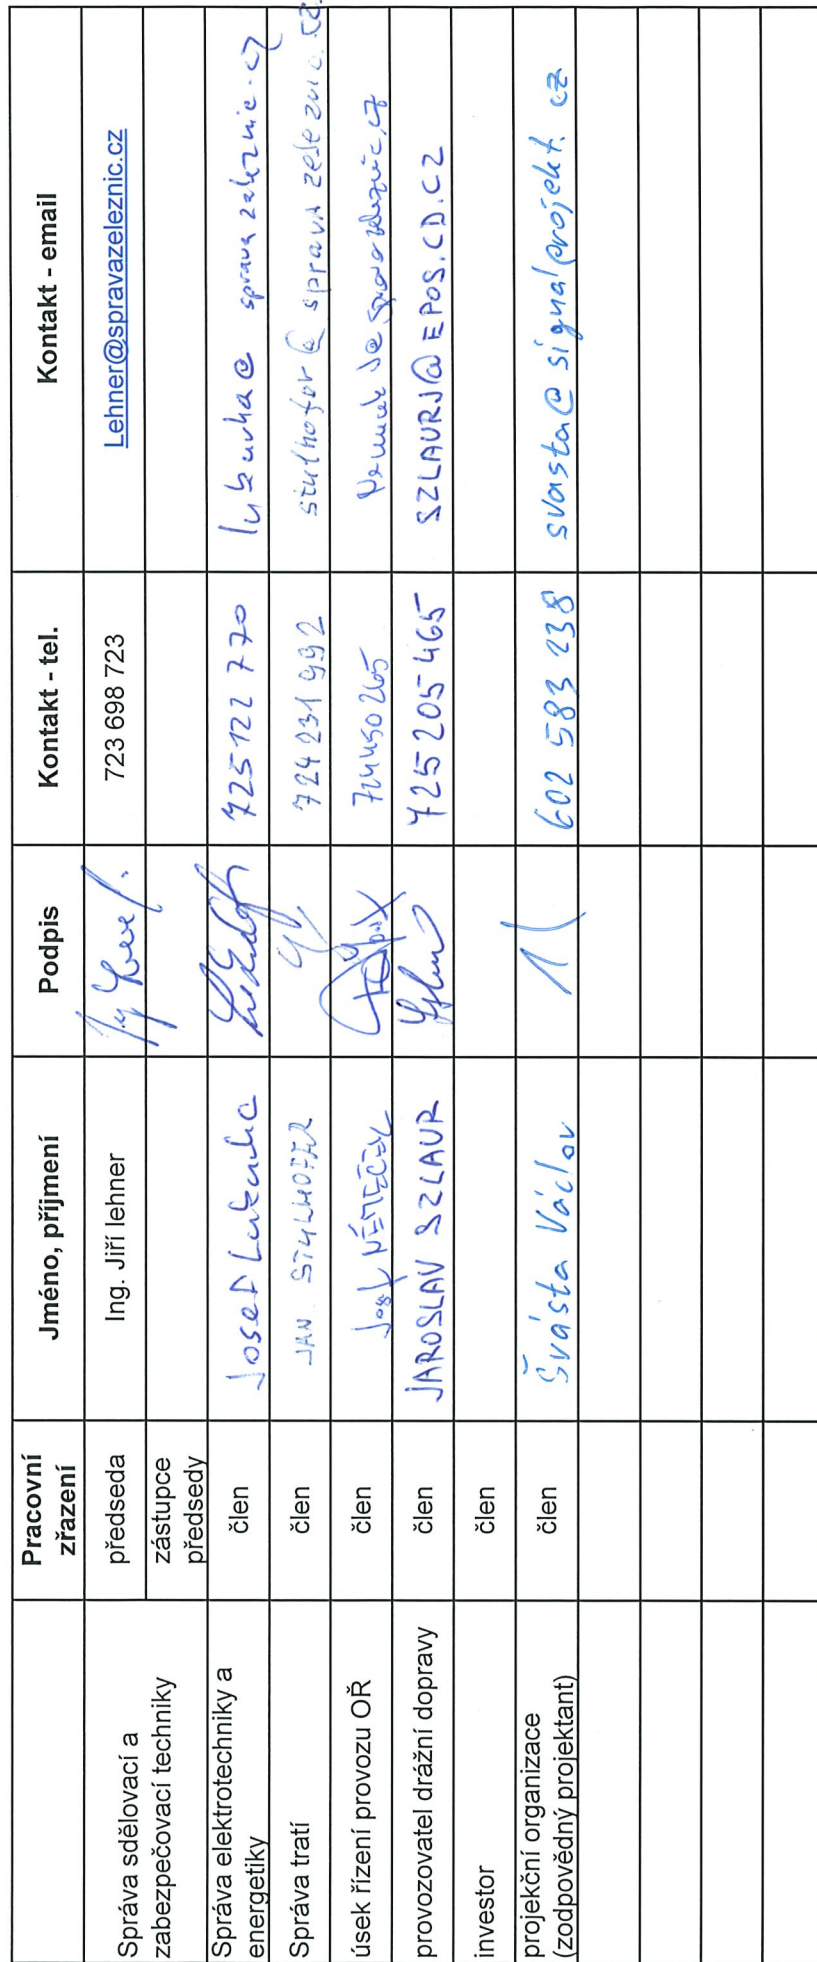 Pracovní zřazení Jméno, příjmení Podpis Kontakt - tel. Kontakt - email
Správa sdělovací a zabezpečovací techniky předseda Ing. Jiří lehner 723 698 723 Lehner@spravazeleznic.cz
zástupce předsedy
Správa elektrotechniky a energetiky člen Josef 725 122 770
Správa tratí člen JAN STULHOFER 724 231 992 stulhofer@spravazeleznic.cz
úsek řízení provozu OŘ člen Josef NĚMEČEK 724450265
provozovatel drážní dopravy člen JAROSLAV SZLAUR 725 205 465 SZLAURJ@EPOS.CD.CZ
investor člen
projekční organizace (zodpovědný projektant) člen Švásta Václav 602 583 238 svasta@signalprojekt.cz